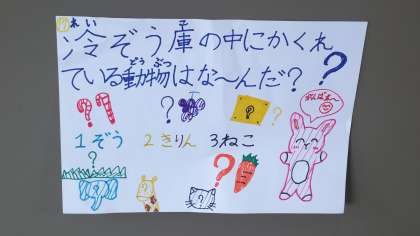 れい
冷ぞう庫の中にかくれ
こ
ている動物はな～んだ？
どう ぶつ
1 ぞう 2 きりん 3 ねこ
がんばれ～